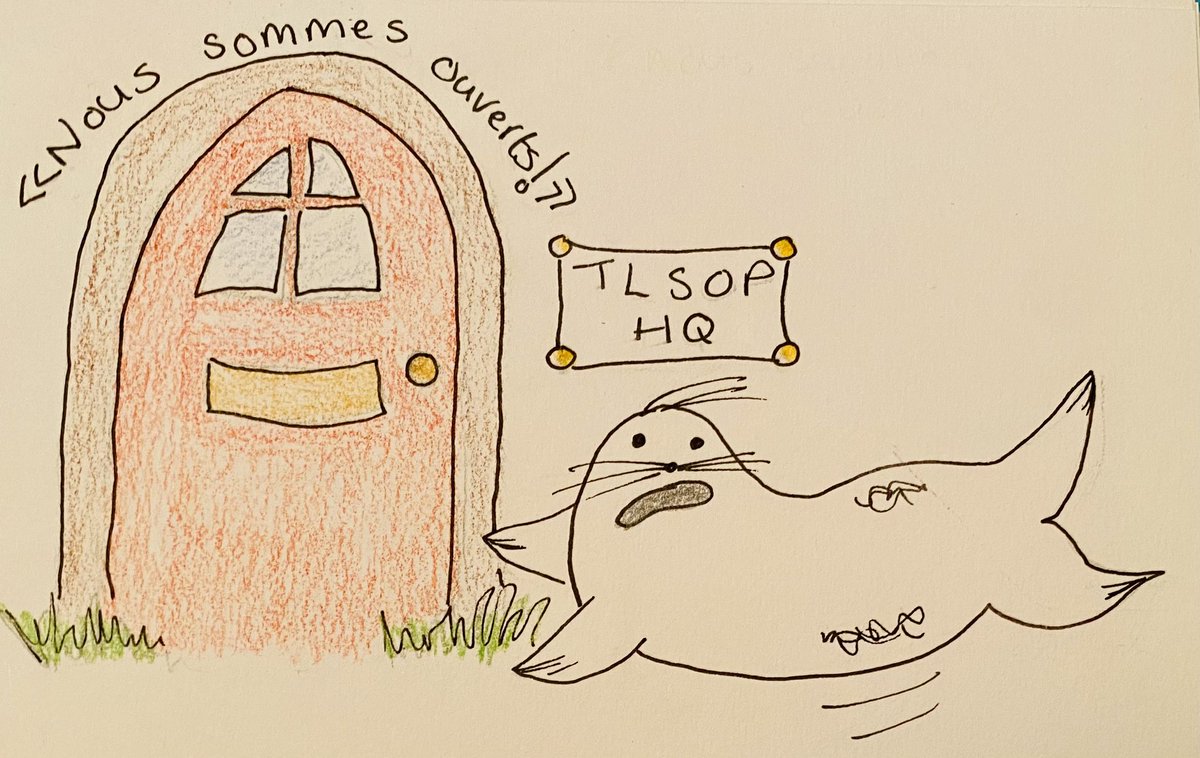 «Nous sommes ouverts!»
TLSOP
HQ